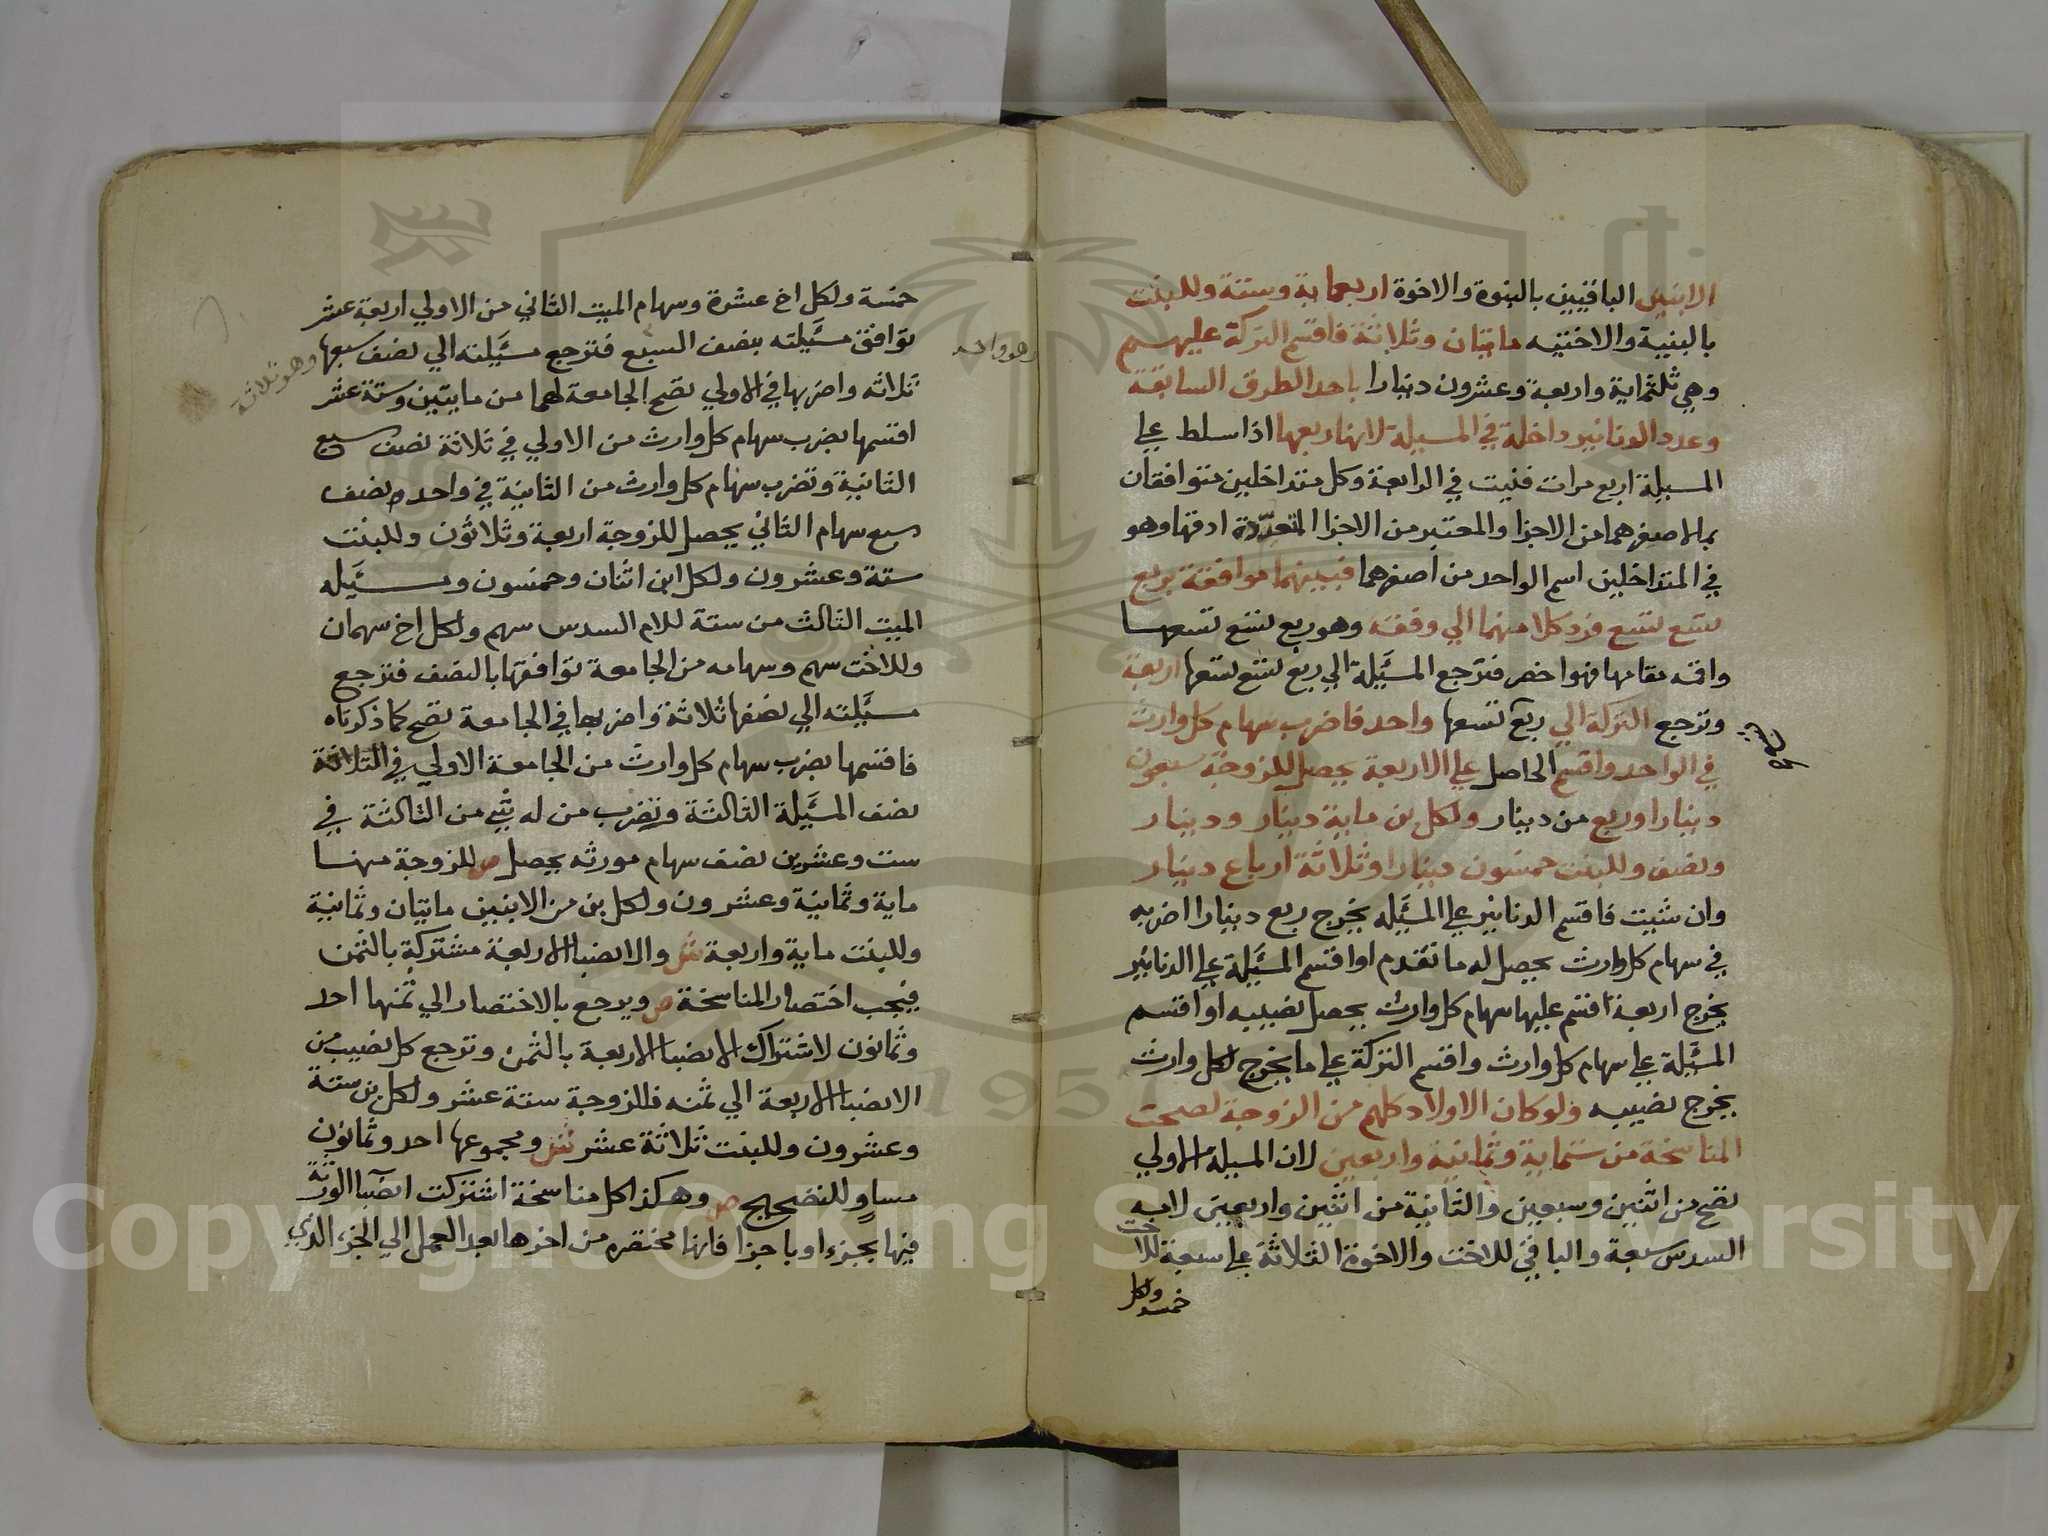 الابنين الباقيين بالبنوة والاخوة اربعماية وستة وللبنت
بالبنية والاختيه مايتان وثلاثة فاقسم التركة عليهم
وهي ثلثماية واربعة وعشرون دينارا باحد الطرق السابقة
وعدد الدنانير داخلة في المسيلة لانها ربعها اذا سلط علي
المسيلة اربع مرات فنيت في الرابعة وكل متداخلين متوافقان
بما لاصغرهما من الاجزا والمعتبر من الاجزا المتعددة ادقها وهو
في المتداخلين اسم الواحد من اصغرهما فبينهما موافقة بربع
تسع تسع فرد كلا منهما الي وفقه وهو ربع تسع تسعها
واقمه مقامها فهو اخصر فترجع المسئيلة الي ربع تسع تسعها اربعة
وترجع التركة الي ربع تسعها واحد فاضرب سهام كل وارث
في الواحد واقسم الحاصل علي الاربعة يحصل للزوجة سبعون
دينارا وربع من دينار ولكل بن ماية دينار ودينار
ونصف وللبنت خمسون دينارا وثلاثة ارباع دينار
وان شيت فاقسم الدنانير علي المسئيله يخرج ربع دينارا اضربه
في سهام كل وارث يحصل له ما تقدم او اقسم المسئيلة علي الدنانير
يخرج اربعة اقسم عليها سهام كل وارث يحصل نصيبه او اقسم
المسئيلة علي سهام كل وارث واقسم التركة علي ما يخرج لكل وارث
يخرج نصيبه ولو كان الاولاد كلهم من الزوجة لصحت
المناسخة من ستماية وثمانية واربعين لان المسيلة الاولي
تصح من اثنين وسبعين والثانية من اثنين واربعين لابه
السدس سبعة والباقي للاخت والاخوة الثلاثة علي سبعة للاخت
خمسة ولكل
خمسة ولكل اخ عشرة وسهام الميت الثاني من الاولي اربعة عشر
توافق مسئيلته بنصف السبع فترجع مسئيلته الي نصف سبعها
وهو ثلاثة
وهو واحد
ثلاثه واضربها في الاولي تصح الجامعة لهما من مايتين وستة عشر
اقسمها بضرب سهام كل وارث من الاولي في ثلاثة نصف سبع
الثانية وتضرب سهام كل وارث من الثانية في واحد نصف
سبع سهام الثاني يحصل للزوجة اربعة وثلاثون وللبنت
ستة وعشرون ولكل ابن اثنان وخمسون ومسئيله
الميت الثالث من ستة للام السدس سهم ولكل اخ سهمان
وللاخت سهم وسهامه من الجامعة توافقها بالنصف فترجع
مسئيلته الي نصفها ثلاثة واضربها في الجامعة تصح كما ذكرناه
فاقسمها بضرب سهام كل وارث من الجامعة الاولي في الثلاثة
نصف المسئيلة الثالثة وتضرب من له شي من الثالثة في
ست وعشرين نصف سهام مورثه يحصل ص للزوجة منها
ماية وثمانية وعشرون ولكل بن من الابنين مايتان وثمانية
وللبنت ماية واربعة ش والانصبا الاربعة مشتركة بالثمن
فيجب اختصار المناسخة ص ويرجع بالاختصار الي ثمنها احد
وثمانون لاشتراك الانصبا الاربعة بالثمن وترجع كل نصيب من
الانصبا الاربعة الي ثمنه فللزوجة ستة عشر ولكل بن ستة
وعشرون وللبنت ثلاثة عشر ش ومجموعها احد وثمانون
مساو للتصحيح ص وهكذا كل مناسخة اشتركت انصبا الورثة
فيها بجزء او باجزا فانها مختصره من اخرها بعد العمل الي الجزء الذي
Copyright © King Saud University
1957